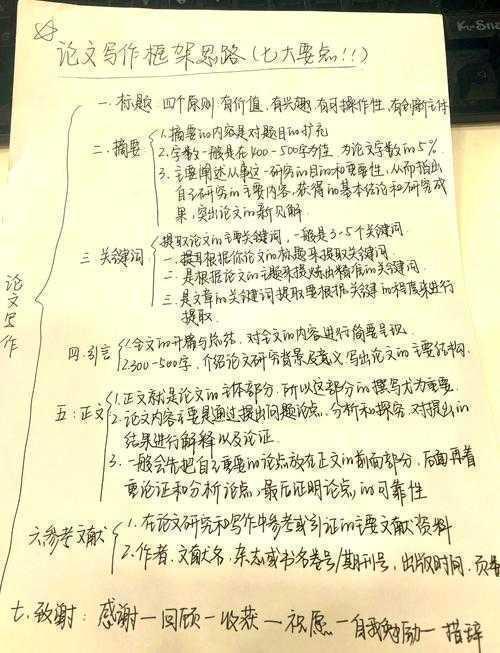 论文写作框架思路(七大要点!!!)
论文写作
一、标题 四个原则:有价值,有兴趣,有可操作性,有创新主体
二、摘要
1.摘要的内容是对题目的扩充
2.字数一般是在400-500字为佳,为论文字数的5%.
3.主要阐述从事这一研究的目的和重要性,从而指出
自己研究的主要内容,获得的基本结论和研究成
果,突出论文的新见解.
三 关键词
提取论文的主要关键词,一般是3-5个关键词.
一.提取根据你论文的标题来提取关键词.
二.是根据论文的主题来提炼出精准的关键词.
三.是文章的关键词提取要根据关键的程度来进行
提取.
四.引言
1.全文的开篇与总结,对全文的内容进行简要呈现.
2.300-500字,介绍论文研究背景及意义,写出论文的主要结构.
五:正文
1.正文就是论文的主体部分,所以这部分的撰写尤为重要.
2.论文内容主要是通过提出问题论点,分析和探究,对提出的
结果进行解释以及论证.
3.一般会先把自己主要的论点放在正文的前面部分,后面再着
重论证和分析论点,最后证明论点的可靠性
六.参考文献
1.在论文研究和写作中参考或引证的主要文献资料
2.作者、文献名、杂志或书名卷号/期刊号,出版时间、页
七、致谢:感谢一回顾一收获一祝愿一自我勉励一措辞